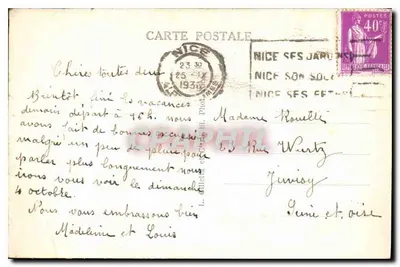 CARTE POSTALE
NICE
NICE SES JARDINS
NICE SON SOLEIL
NICE SES
POSTES
40c
Chères toutes deux
Bientôt fini les vacances
demain départ à h. nous
avons fait de bonnes
malgré un peu de pluie pour
parler plus longuement nous
irons vous voir le dimanche
4 octobre.
Nous vous embrassons bien
Madeleine et Louis
Madame
Rue Wurtz
Juvisy
Seine et oise
CPARAMA